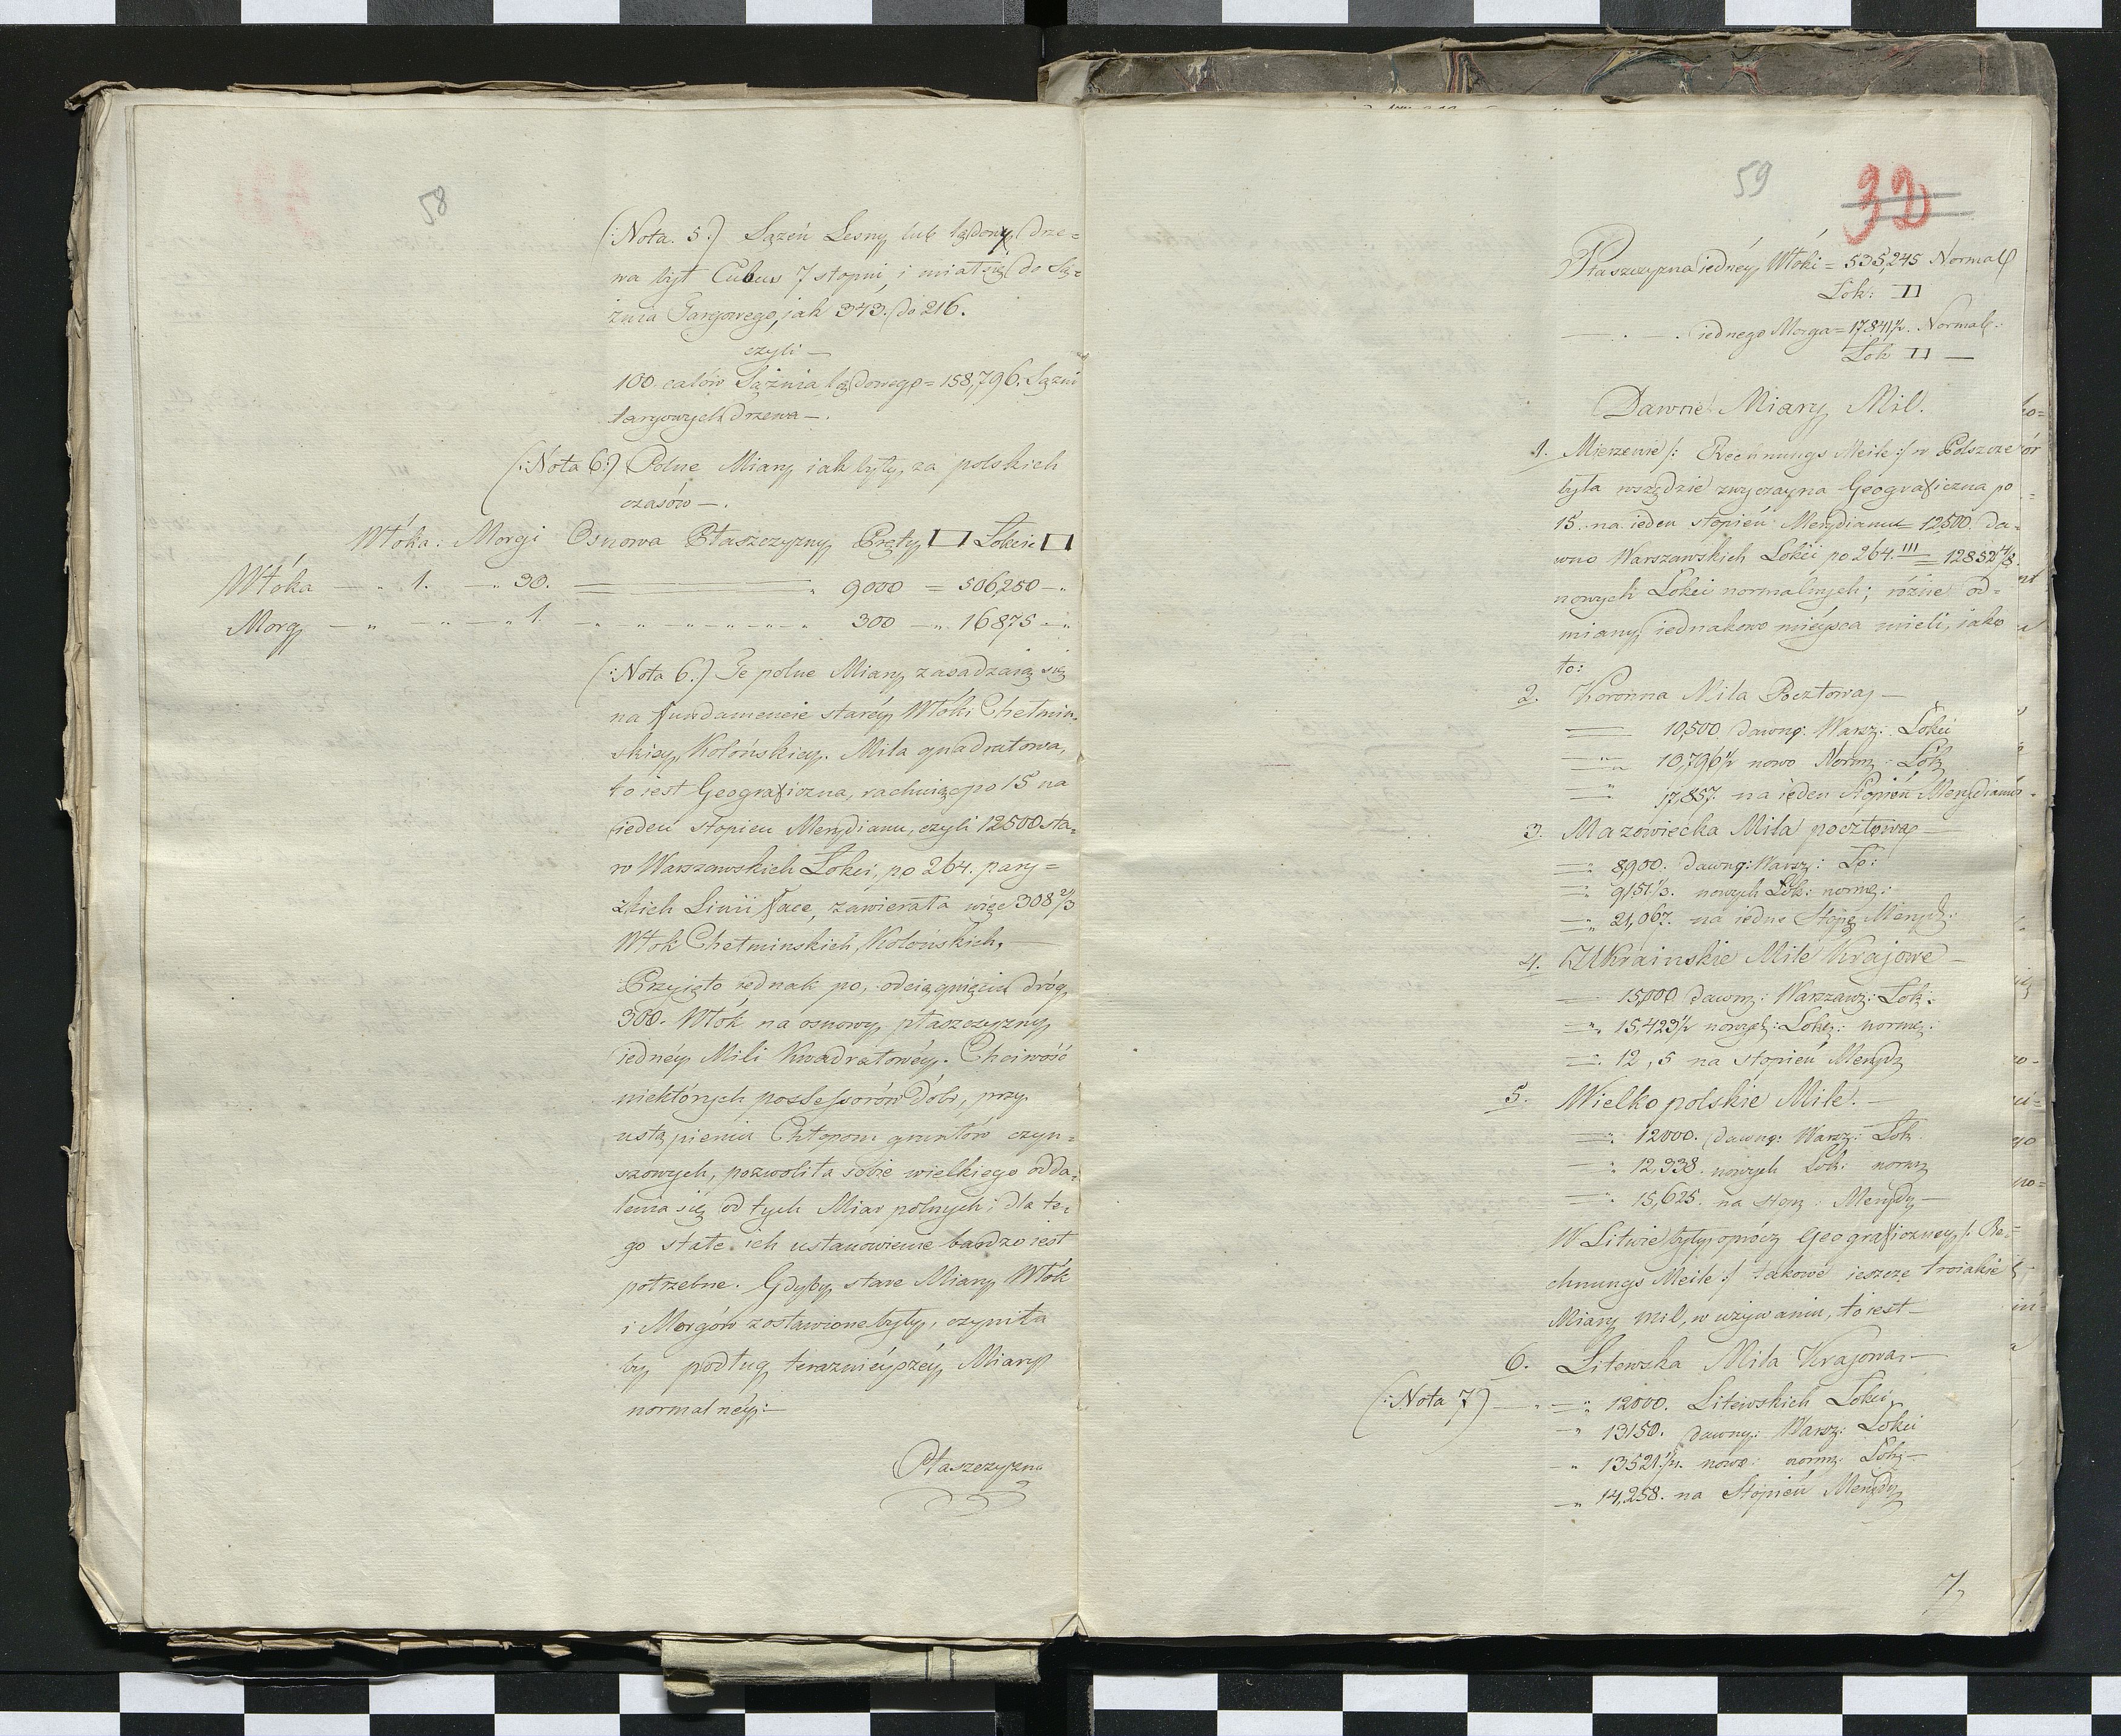 58
(: Nota. 5 :) Sążeń Lesny lub lądowy drze=
wa był Cubus 7 stopni, i miał się do Są=
żnia Targowego, jak 343. do 216.
czyli —
100 całów Sążnia lądowego = 158,796. Sążni
targowych drzewa —.
(: Nota 6 :) Polne Miary iak były, za polskich
czasów —.
Włóka. Morgi Osnowa Płaszczyzny Pręty □ Łokcie □
Włóka — „ 1. — „ 30. „ 9000 = 506,250 — „
Morg — „ — „ — „ 1. — „ — „ — „ — „ — „ 300 — „ 16875 — „
(: Nota 6. :) Te polne Miary zasadzaią się
na fundamencie staréy Włóki Chełmin=
skiey, Kolońskiey. Mila quadratowa,
to iest Geograficzna, rachuiąc po 15 na
ieden stopien Merydianu, czyli 12500 sta=
ro Warszawskich Łokci, po 264. pary=
zkich Linii face, zawierała więc 308 2/3
Włok Chełminskich, Kolońskich. —
Przyięto iednak po, odciągnięciu dróg,
300. Włók na osnowy płaszczyzny
iednéy Mili Kwadratowéy. Chciwość
niektórych possessorów Dóbr, przy
ustąpieniu Chłopom gruntów czyn=
szowych, pozwoliła sobie wielkiego odda=
lenia się od tych Miar polnych; dla te=
go stałe ich ustanowienie bardzo iest
potrzebne. Gdyby stare Miary Włók
i Morgów zostawione były, czyniła
by podług teraznieyszéy Miary
normalnéy: —
Płaszczyzna
59
32
Płaszczyzna iednéy Włóki = 535,245 Normal
Łok: □
— . — . iednego Morga = 17841 1/2. Normal:
Łok □ —
Dawne Miary Mil.
1. Mierzenie /: Rechnungs Meile :/ w Polszcze
była wszędzie zwyczayna Geograficzna po
15. na ieden stopień Merydianu = 12500. da=
wno Warszawskich Łokci po 264.''' = 12852 4/8.
nowych Łokci normalnych; różne od=
miany, iednakowo miéysca mieli, iako
to:
2. Koronna Mila Pocztowa —
— 10,500 dawny: Warsz: Łokci
— „ 10,796 1/2 nowo Normy: Łok
— „ 17,857. na ieden Stopień Merydianu
3. Mazowiecka Mila pocztowa —
— „ 8,900. dawny: Warsz: Ło:
— „ 9,151 1/3. nowych Łok: normy:
— „ 21,067. na iedne Stopę Meryd:
4. Ukrainskie Mile Krajowe —
— 15,000 dawny: Warszaw: Łok:
— „ 15,423 1/2 nowych: Łok: normy:
— „ 12,5 na stopień Meryd
5. Wielkopolskie Mile. —
— „ 12000. dawny: Warsz: Łok.
— „ 12,338. nowych Łok: normy
— „ 15,625. na stop: Merydy —
W Litwie były oprócz Geograficzney /: Re=
chnungs Meile :/ takowe ieszcze troiakie
Miary Mil, w używaniu, to iest —
6. Litewska Mila Krajowa, —
(: Nota 7) — „ — „ 12000. Litewskich Łokci,
— „ 13150. dawny: Warsz: Łokci
— „ 13521 1/4. nowo: normy: Łok —
— „ 14,258. na Stopień Merydy
7,